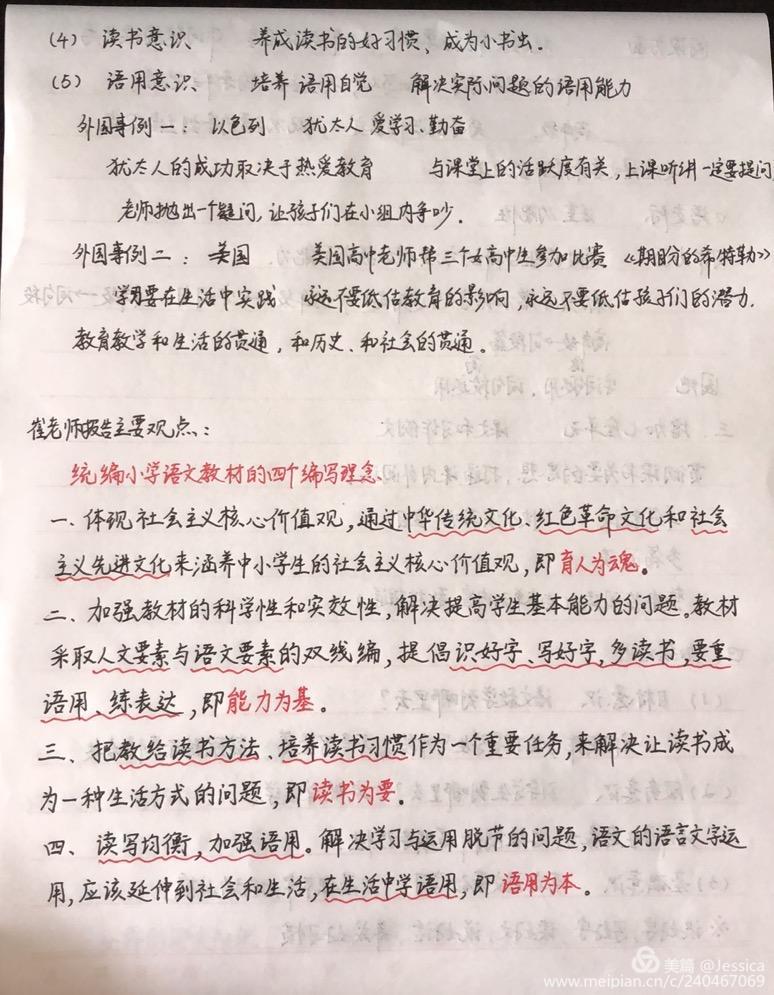 (4) 读书意识 养成读书的好习惯，成为小书虫.
(5) 语用意识 培养语用自觉 解决实际问题的语用能力
外国事例一： 以色列 犹太人 爱学习、勤奋
犹太人的成功取决于热爱教育 与课堂上的活跃度有关，上课听讲一定要提问
老师抛出一个疑问，让孩子们在小组内争吵.
外国事例二： 美国 美国高中老师帮三个女高中生参加比赛 《期盼的希特勒》
学习要在生活中实践 永远不要低估教育的影响，永远不要低估孩子们的潜力.
教育教学和生活的贯通，和历史、和社会的贯通。
崔老师报告主要观点：
统编小学语文教材的四个编写理念
一、体现社会主义核心价值观，通过中华传统文化、红色革命文化和社会
主义先进文化来涵养中小学生的社会主义核心价值观，即育人为魂。
二、加强教材的科学性和实效性，解决提高学生基本能力的问题。教材
采取人文要素与语文要素的双线编，提倡识好字、写好字，多读书，要重
语用、练表达，即能力为基。
三、把教给读书方法、培养读书习惯作为一个重要任务，来解决让读书成
为一种生活方式的问题，即读书为要。
四、读写均衡，加强语用。解决学习与运用脱节的问题，语文的语言文字运
用，应该延伸到社会和生活，在生活中学语用，即语用为本。
美篇 @Jessica
www.meipian.cn/c/240467069